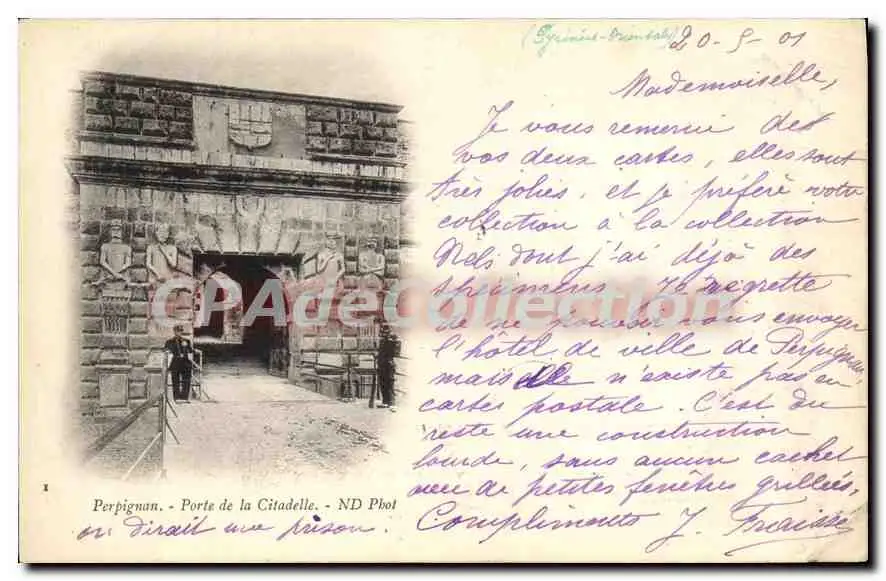 (Pyrénées-Orientales)
20-5-01
Mademoiselle,
Je vous remercie des
vos deux cartes, elles sont
très jolies, et je préfère votre
collection à la collection
Nels dont j'ai déjà des
spécimens. Je regrette
de ne pouvoir vous envoyer
l'hôtel de ville de Perpignan,
mais elle n'existe pas en
carte postale. C'est du
reste une construction
lourde, sans aucun cachet
avec de petites fenêtres grillées,
Compliments J. Fraisse
CPA Collection
1
Perpignan. - Porte de la Citadelle. - ND Phot
on dirait une prison.